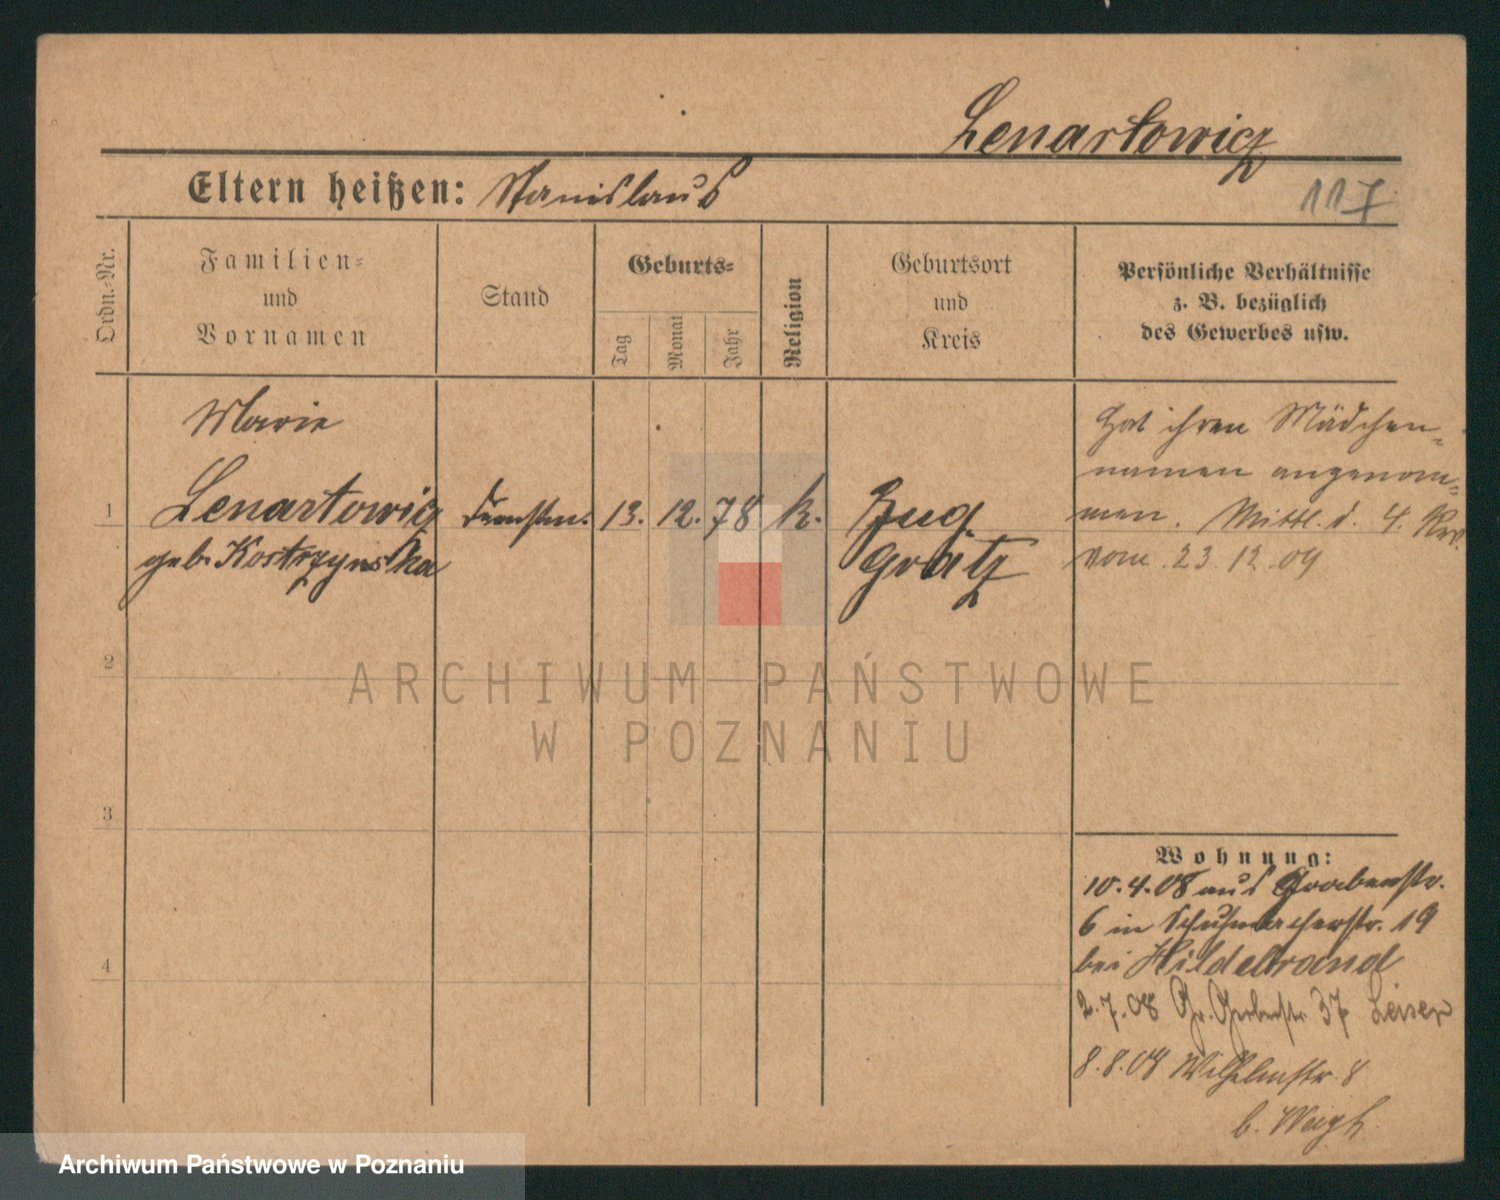 Lenartowicz
Eltern heißen: Stanislaus
117
Ordn.-Nr.
Familien-
und
Vornamen
Stand
Geburts-
Tag
Monat
Jahr
Religion
Geburtsort
und
Kreis
Persönliche Verhältnisse
z. B. bezüglich
des Gewerbes usw.
Marie
1 Lenartowicz 13. 12. 78 k.
geb. Kostrzynska Grätz
Hat ihren Mädchen-
namen angenom-
men. Mittl. d. 4. Rev.
vom 23.12.09
2
3
4
ARCHIWUM PAŃSTWOWE
W POZNANIU
Wohnung:
10.4.08 aus Grabenstr.
6 in Schuhmacherstr. 19
bei Hildebrand
2.7.08 Gr. Gerberstr. 37 Leiser
8.8.08 Wilhelmstr. 8
b.
Archiwum Państwowe w Poznaniu